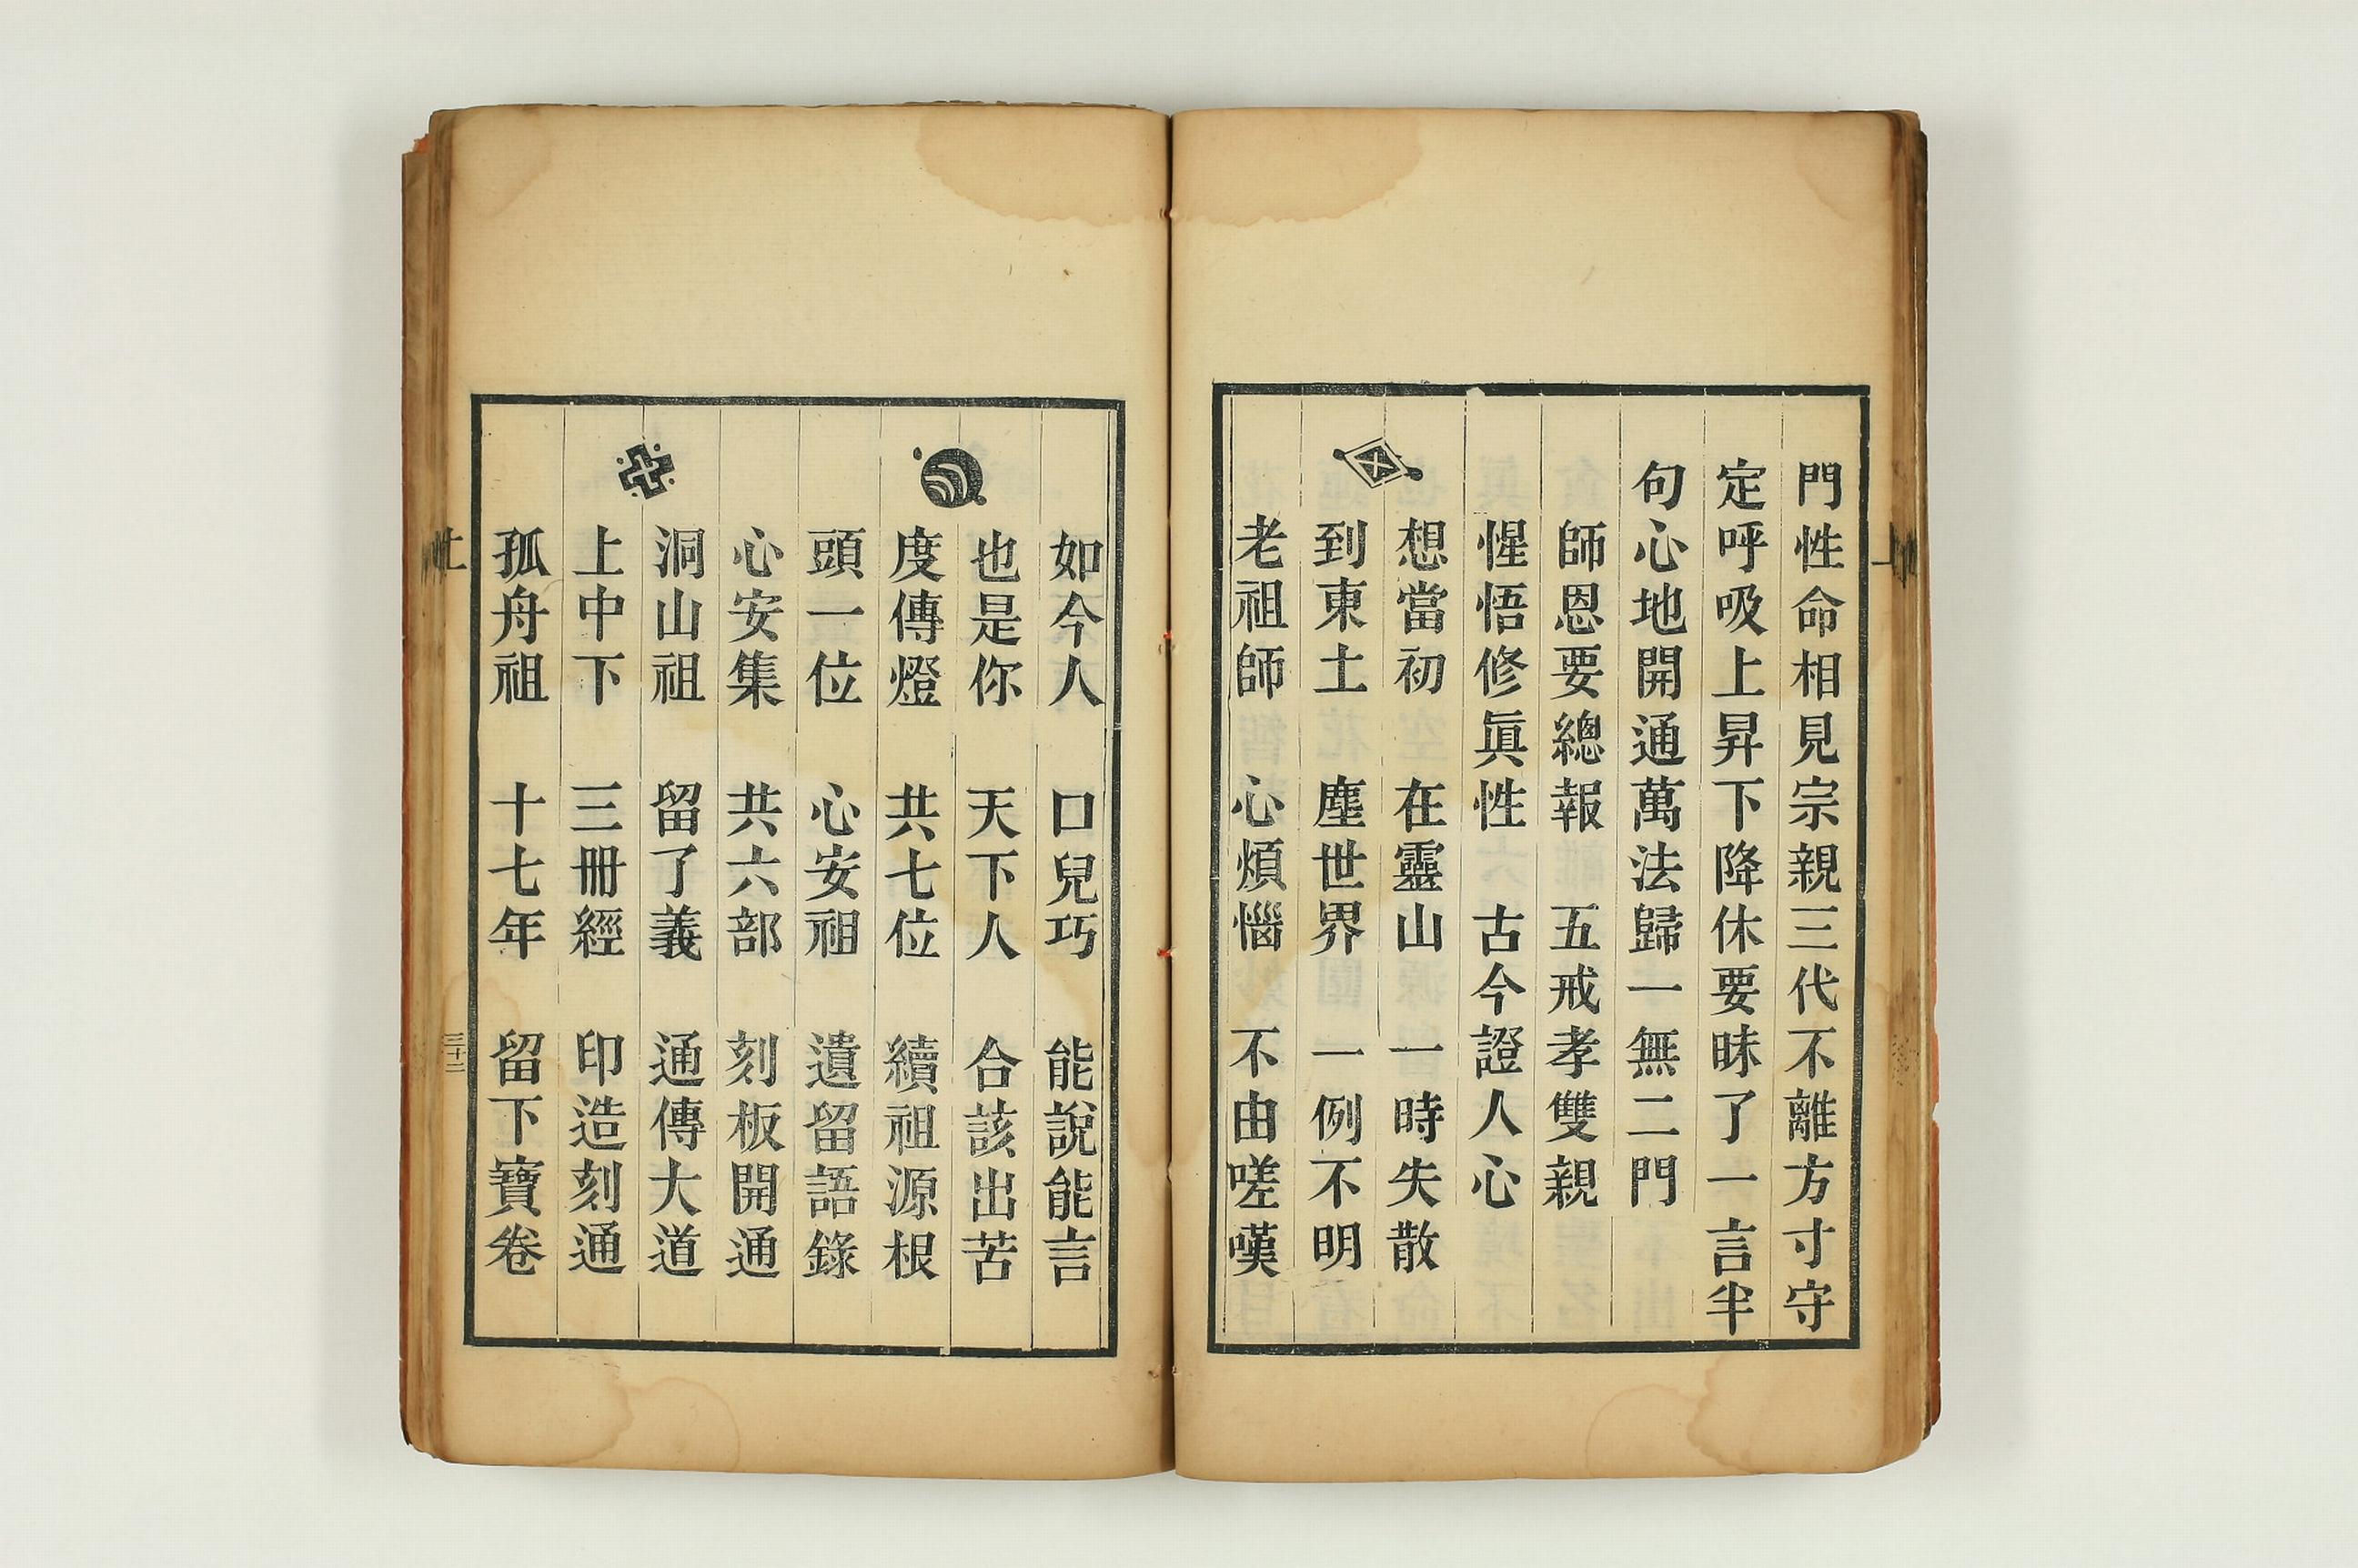 門性命相見宗親三代不離方寸守
定呼吸上昇下降休要昧了一言半
句心地開通萬法歸一無二門
師恩要總報　五戒孝雙親
惺悟修眞性　古今證人心
想當初　在靈山　一時失散
到東土　塵世界　一例不明
老祖師　心煩惱　不由嗟嘆
如今人　口兒巧　能說能言
也是你　天下人　合該出苦
度傳燈　共七位　續祖源根
頭一位　心安祖　遺留語錄
心安集　共六部　刻板開通
洞山祖　留了義　通傳大道
上中下　三冊經　印造刻通
孤舟祖　十七年　留下寶卷
三十二